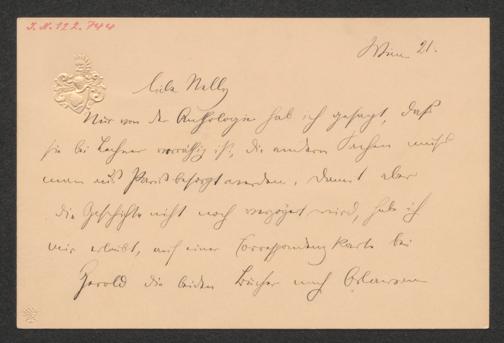 I.N. 122.744
Wien 21.
Liebe Nelly
Nur von der Anthologie hab ich gesagt, daß
sie bei Lechner vorräthig ist, die andern Sachen muß
man aus Paris besorgt werden. Damit aber
die Geschichte nicht noch verzögert wird, habe ich
mir erlaubt, auf einer Correspondenz Karte bei
Gerold die beiden Bücher nach